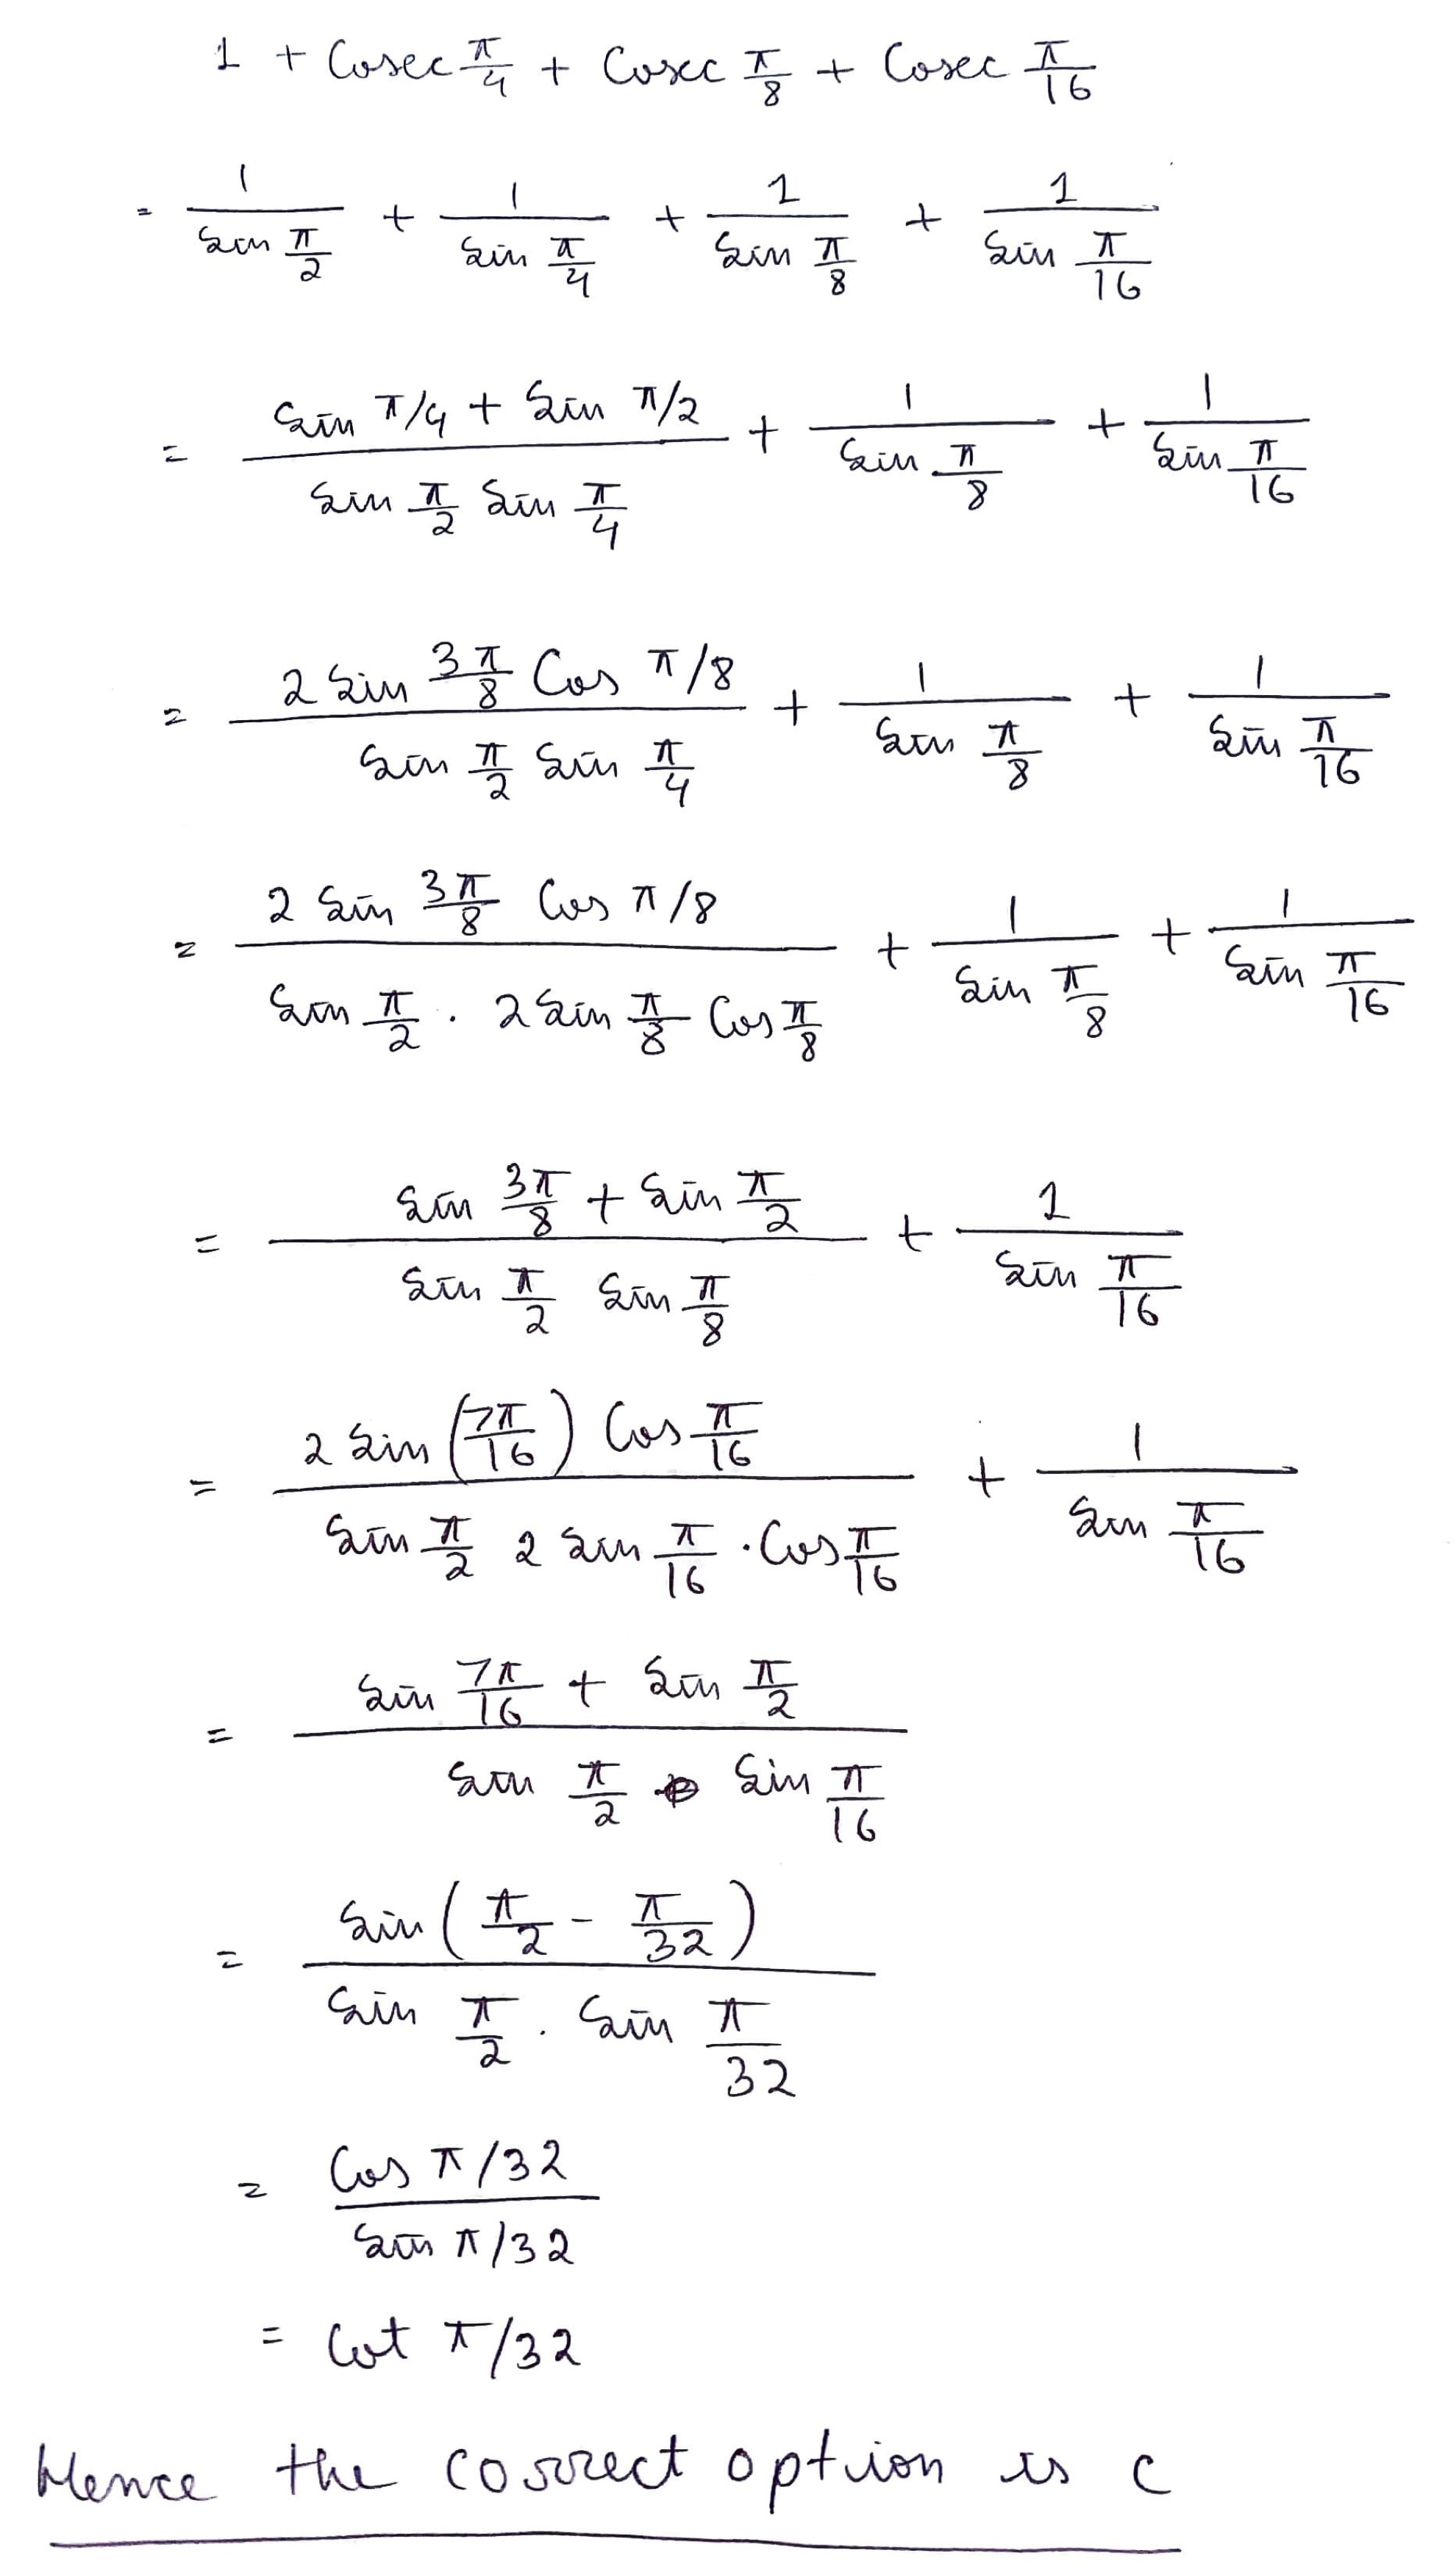 1 + Cosec π/4 + Cosec π/8 + Cosec π/16
= 1/(Sin π/2) + 1/(Sin π/4) + 1/(Sin π/8) + 1/(Sin π/16)
= (Sin π/4 + Sin π/2)/(Sin π/2 Sin π/4) + 1/(Sin π/8) + 1/(Sin π/16)
= (2 Sin 3π/8 Cos π/8)/(Sin π/2 Sin π/4) + 1/(Sin π/8) + 1/(Sin π/16)
= (2 Sin 3π/8 Cos π/8)/(Sin π/2 . 2 Sin π/8 Cos π/8) + 1/(Sin π/8) + 1/(Sin π/16)
= (Sin 3π/8 + Sin π/2)/(Sin π/2 Sin π/8) + 1/(Sin π/16)
= (2 Sin (7π/16) Cos π/16)/(Sin π/2 2 Sin π/16 . Cos π/16) + 1/(Sin π/16)
= (Sin 7π/16 + Sin π/2)/(Sin π/2 Sin π/16)
= (Sin (π/2 - π/32))/(Sin π/2 . Sin π/32)
= (Cos π/32)/(Sin π/32)
= Cot π/32
Hence the correct option is c